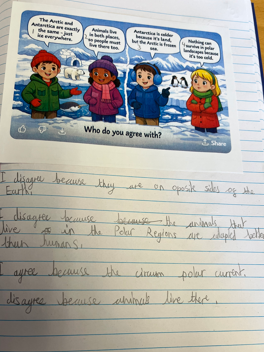 The Arctic and
Antarctica are exactly
the same - just
ice everywhere.
Animals live
in both places,
so people must
live there too.
Antarctica is colder
because it's land,
but the Arctic is frozen
sea.
Nothing can
survive in polar
landscapes because
it's too cold.
Who do you agree with?
Share
I disagree because they are on oposit sides of the
Earth.
I disagree because because the animals that
live in the Polar Regions are adapted better
than humans.
I agree because the circum polar current.
disagree because animals live there.